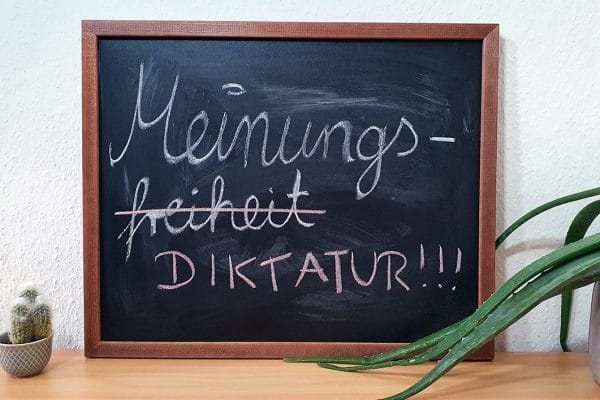 Meinungs-
freiheit
DIKTATUR!!!